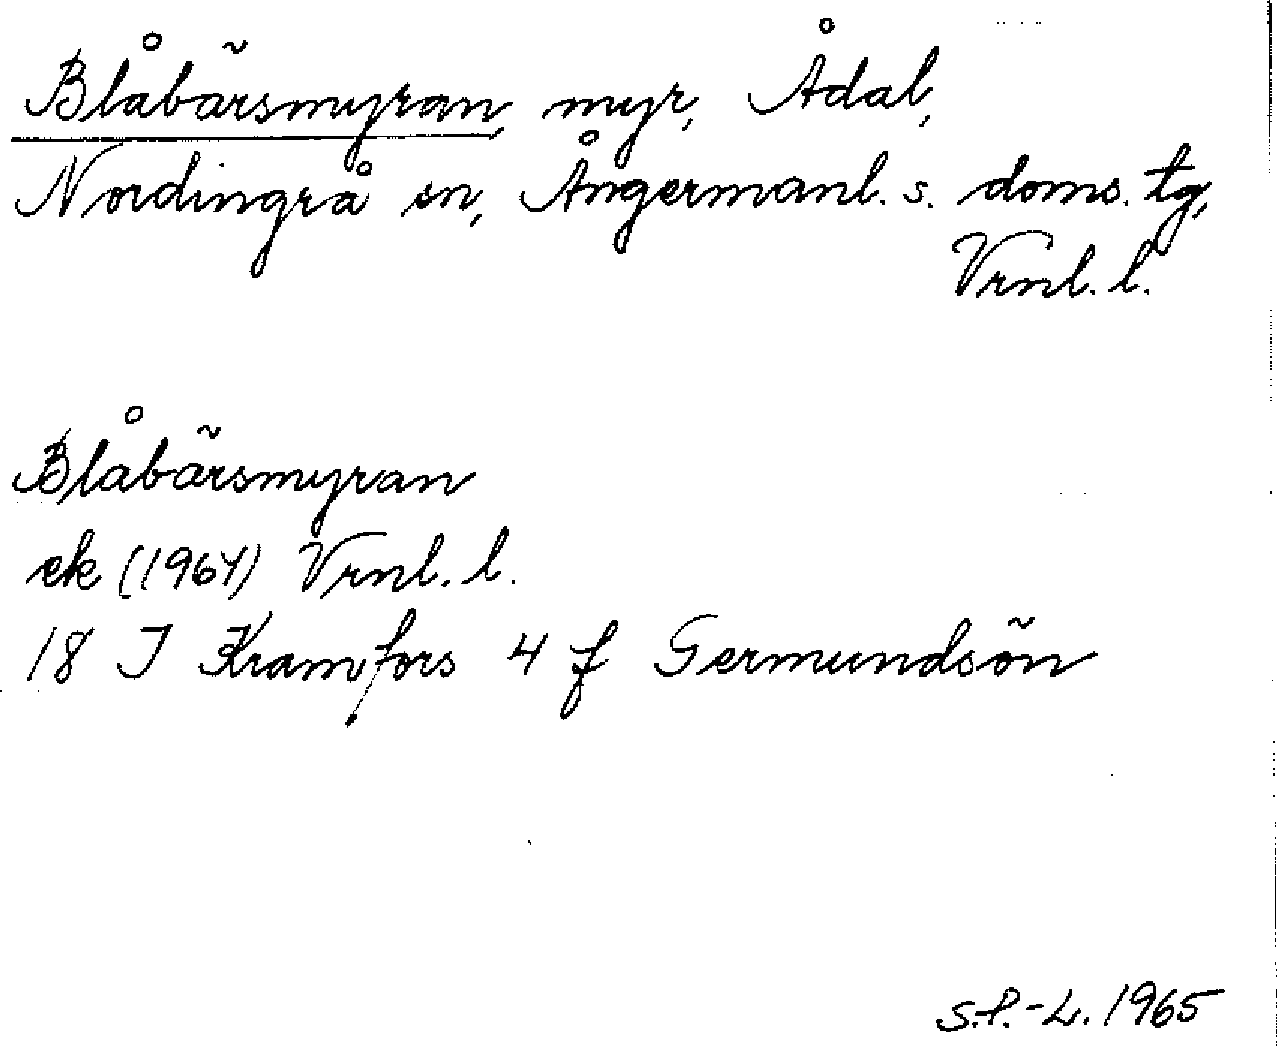 Blåbärsmyran, myr, Ådal,
Nordingrå sn, Ångermanl. s. doms. tg,
Vrnl. l.
Blåbärsmyran
ek (1964) Vrnl. l.
18 I Kramfors 4 f Germundsön
S.P.-L. 1965